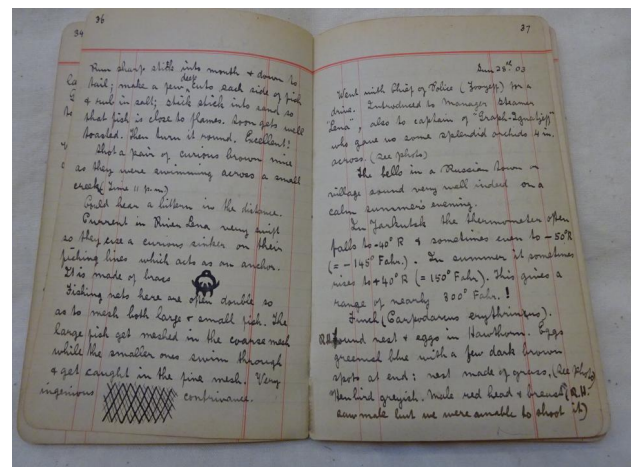 36
34
Run sharp stick into mouth & down to
tail; make a few deep cuts each side of fish
& rub in salt; stick stick into sand so
that fish is close to flames. Soon gets well
toasted. Then turn it round. Excellent!
Shot a pair of curious brown mice
as they were swimming across a small
creek (Time 11 p.m)
Could hear a bittern in the distance.
Current in River Lena very swift
so they use a curious sinker on their
fishing lines which acts as an anchor.
It is made of brass
Fishing nets here are often double so
as to mesh both large & small fish. The
large fish get meshed in the coarse mesh
while the smaller ones swim through
& get caught in the fine mesh. Very
ingenious contrivance.
37
June 28th 03
Went with Chief of Police for a
drive. Introduced to Manager Steamer
"Lena", also to captain of "Graph-Ignatieff"
who gave us some splendid orchids 4 in.
across. (See photo)
The bells in a Russian town or
village sound very well indeed on a
calm summer's evening.
In Jarkutsk the thermometer often
falls to -40° R & sometimes even to -50°R
(= -145° Fahr.). In summer it sometimes
rises to +40° R (= 150° Fahr.). This gives a
range of nearly 300° Fahr. !
Finch (Carpodacus erythrinus).
R.H. found nest & eggs in Hawthorn. Eggs
greenish blue with a few dark brown
spots at end; nest made of grass. (See photo)
Hen bird greyish. Male red head & breast (R.H.
saw male but we were unable to shoot it)